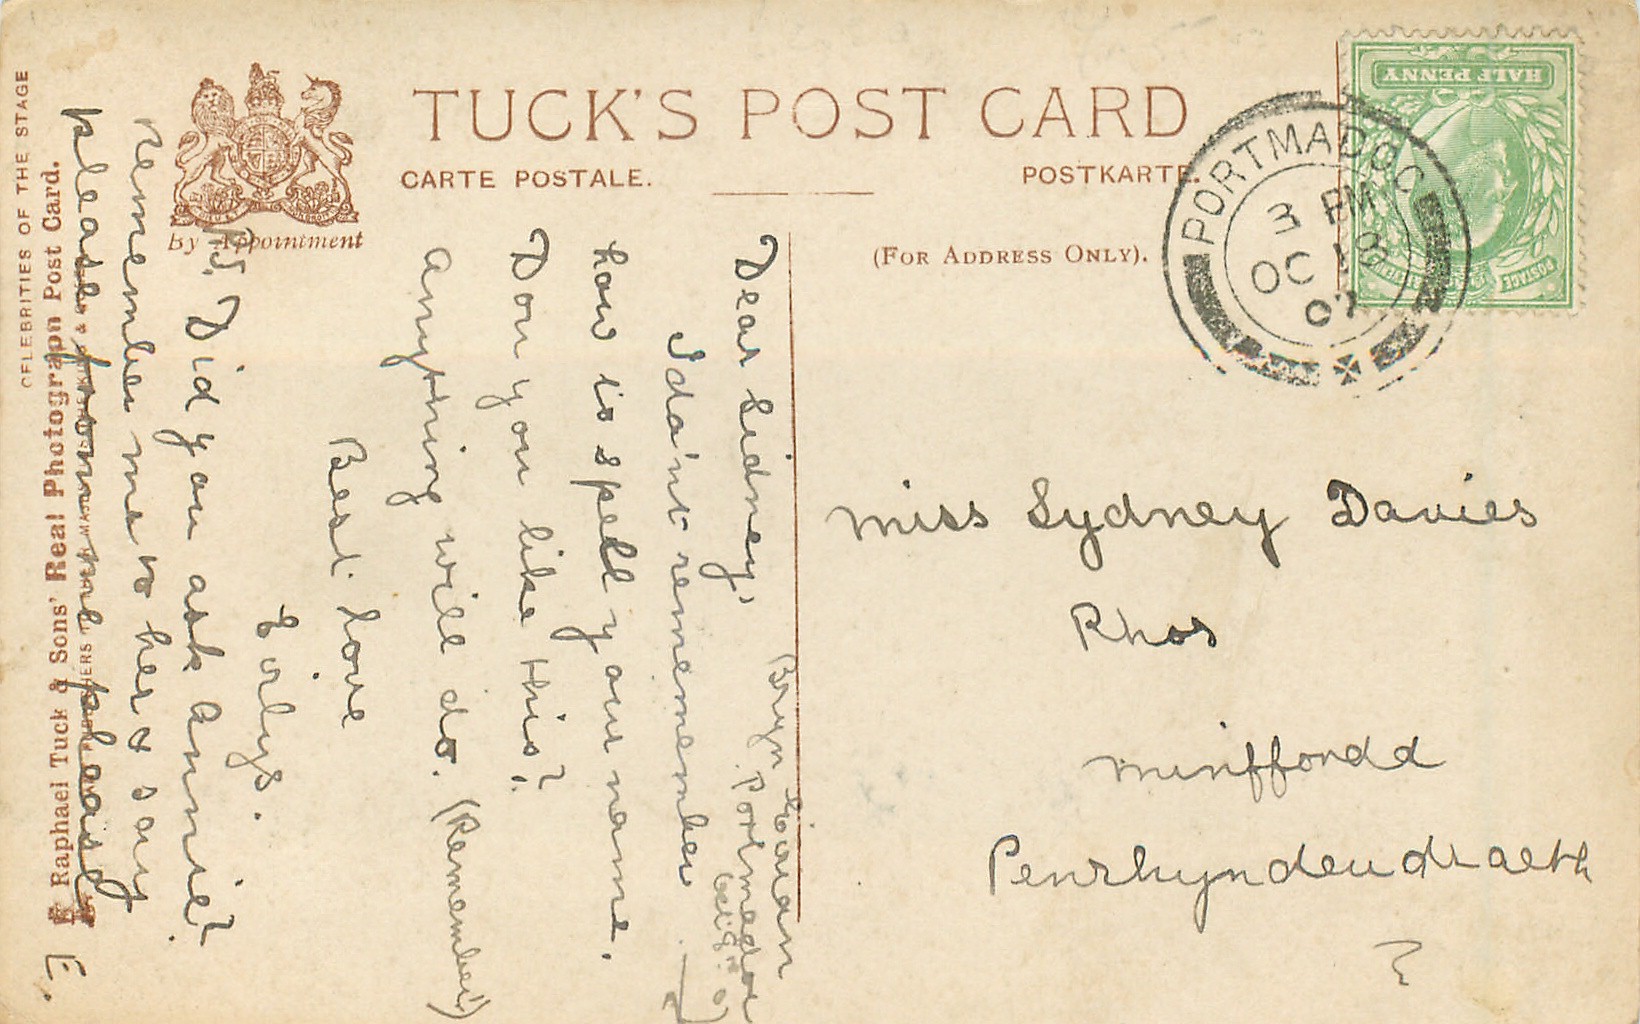 TUCK'S POST CARD
CARTE POSTALE.
POSTKARTE.
By Appointment
(FOR ADDRESS ONLY).
HALF PENNY
POSTAGE
PORTMADOC
3 PM
OC 18
07
Miss Sydney Davies
Rhos
Minffordd
Penrhyndeudraeth
Bryn Eirian
Portmadoc
Dear Sidney,
I da'nt remember
how is spell your name.
Don you like this?
Anything will do. (Remember!)
Best love
Eirlys.
P.S. Did you ask Annie?
remember me to her & say
please from me please
E.
CELEBRITIES OF THE STAGE
Raphael Tuck & Sons' Real Photograph Post Card.